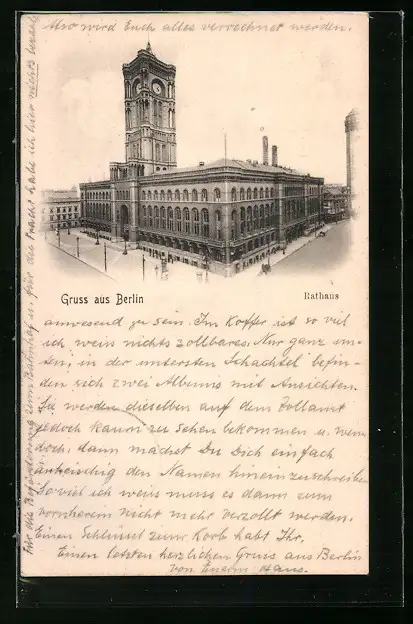 Also wird Euch alles verrechnet werden.
Gruss aus Berlin
Rathaus
anwesend zu sein. Im Koffer ist so viel
ich weis nichts zollbares. Nur ganz un-
ten, in der untersten Schachtel befin-
den sich zwei Albums mit Ansichten.
Sie werden dieselben auf dem Zollamt
jedoch kaum zu sehen bekommen u. wenn
doch, dann machst Du Dich einfach
anheischig den Namen hineinzuschreiben
So viel ich weis muss es dann zum
vornherein nicht mehr verzollt werden.
Einen Schlüssel zum Korb habt Ihr.
Einen letzten herzlichen Gruss aus Berlin
von Euerm Hans.
Für die Beförderung zum Bahnhof u. für die Fracht habe ich hier nichts bezahlt